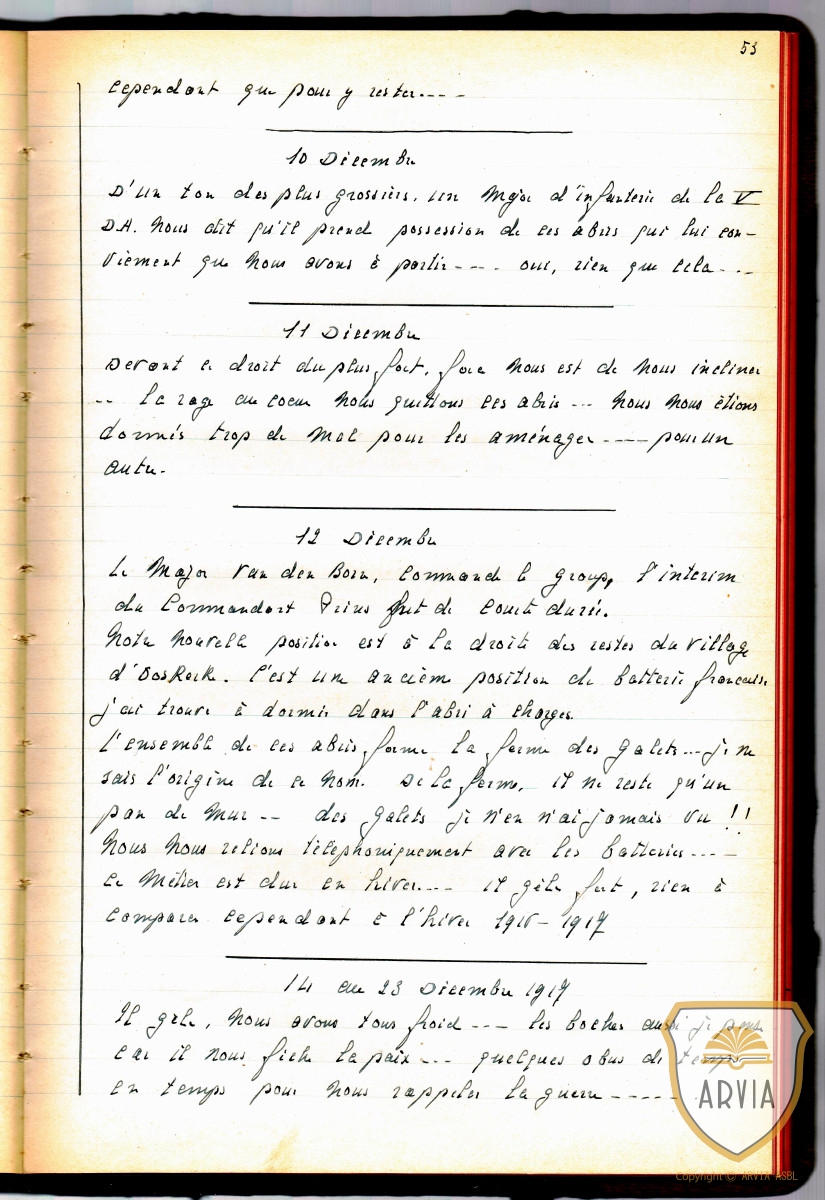 53
cependant que pour y rester....
10 Décembre
D'un ton des plus grossiers, un Major d'infanterie de la V
D.A. nous dit qu'il prend possession de ces abris qui lui con-
viennent que nous avons à partir.... oui, rien que cela...
11 Décembre
Devant le droit du plus fort, force nous est de nous incliner
.. la rage au coeur nous quittons ces abris ... nous nous étions
donnés trop de mal pour les aménager .... pour un
autre.
12 Décembre
Le Major Van den Born, commande le groupe, l'interim
du Commandant Prins fut de courte durée.
Notre nouvelle position est à la droite des restes du village
d'Ooskerk. C'est une ancienne position de batterie française
j'ai trouvé à dormir dans l'abri à charges.
L'ensemble de ces abris forme la ferme des Galets... je ne
sais l'origine de ce nom. De la ferme, il ne reste qu'un
pan de mur .. des galets je n'en n'ai jamais vu !!
Nous nous relions téléphoniquement avec les batteries....
Le Métier est dur en hiver... il gèle fort, rien à
comparer cependant à l'hiver 1916-1917
14 au 23 Décembre 1917
Il gèle, nous avons tous froid ... les boches aussi je pense
car il nous fiche la paix ... quelques obus de temps
en temps pour nous rappeler la guerre .....
ARVIA
Copyright © ARVIA ASBL